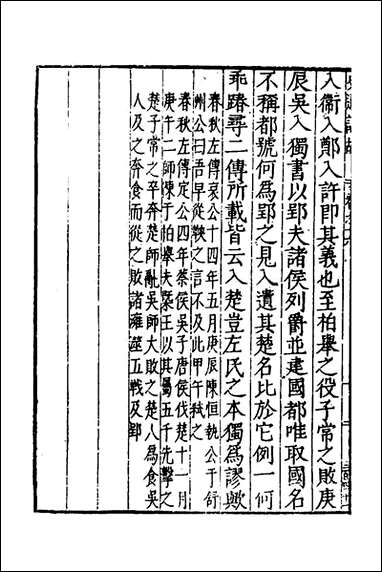 入衞入鄭入許即其義也至柏舉之役子常之敗庚
辰吳入獨書以郢夫諸侯列爵並建國都唯取國名
不稱都號何爲郢之見入遺其楚名比於它例一何
乖踳尋二傳所載皆云入楚豈左氏之本獨爲謬歟
春秋左傳哀公十四年五月庚辰陳恒執公于舒
州公曰吾早從鞅之言不及此甲午弒之
春秋左傳定公四年蔡侯吳子唐侯伐楚十一月
庚午二師陳于柏舉夫槩王以其屬五千先擊之
楚子常之卒奔楚師亂吳師大敗之楚人爲食吳
人及之奔食而從之敗諸雍澨五戰及郢